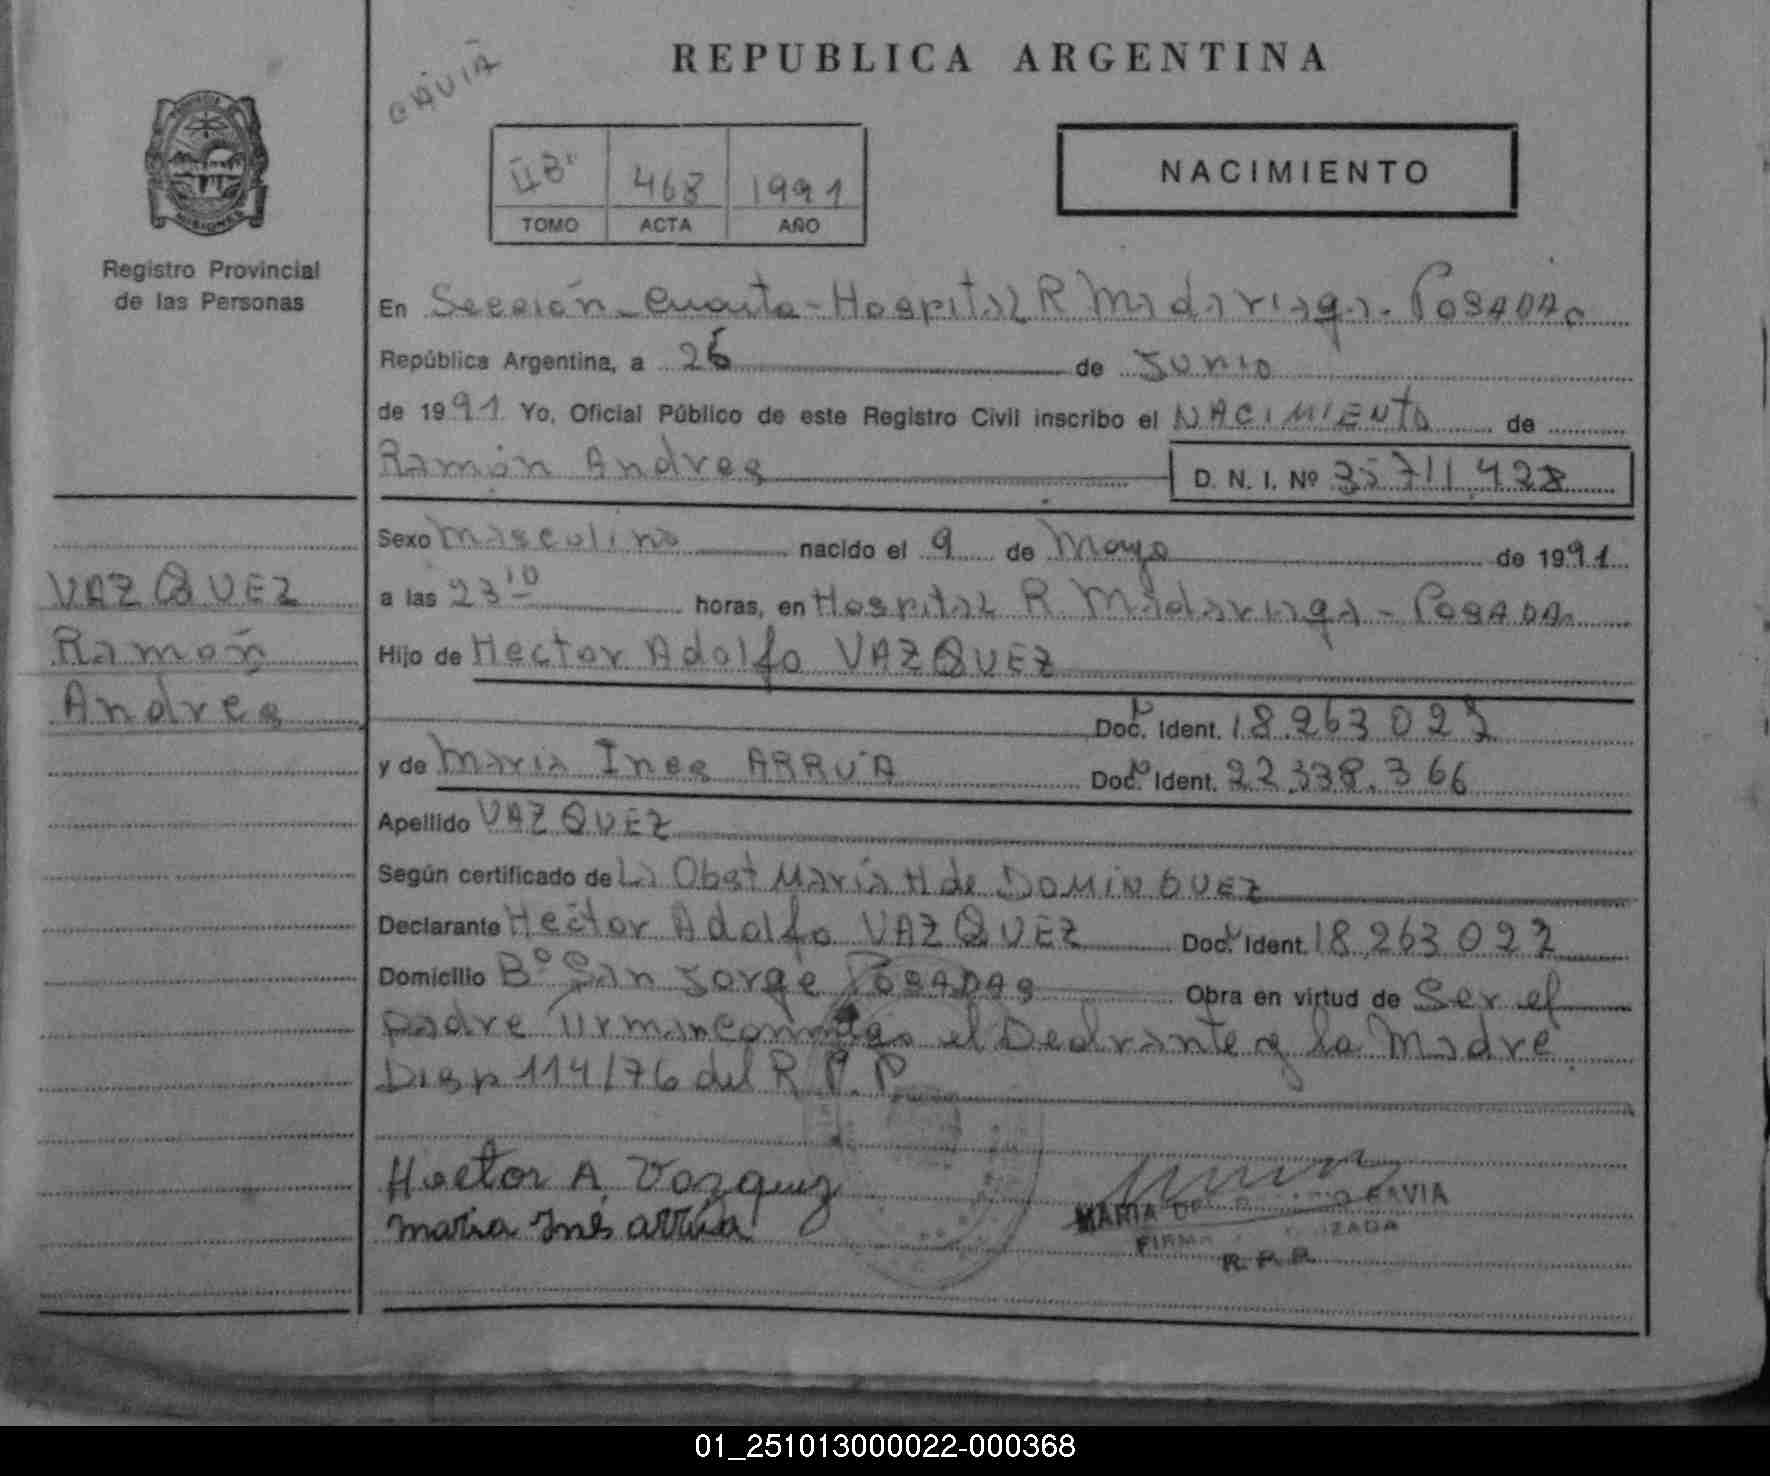 REPUBLICA ARGENTINA
CAVIA
II Bis 468 1991
TOMO ACTA AÑO
NACIMIENTO
MISIONES
Registro Provincial
de las Personas
En Sección Cuarta - Hospital R Madariaga - Posadas
República Argentina, a 26 de Junio
de 1991 Yo, Oficial Público de este Registro Civil inscribo el NACIMIENTO de
Ramón Andres D. N. I. Nº 35.711.428
Sexo Masculino nacido el 9 de Mayo de 1991
a las 23 10 horas, en Hospital R. Madariaga - Posadas
Hijo de Hector Adolfo VAZQUEZ
Doc. Ident. 18.263.022
y de Maria Ines ARRUA Doc. Ident. 22.338.366
Apellido VAZQUEZ
Según certificado de La Obst Maria H de DOMINGUEZ
Declarante Hector Adolfo VAZQUEZ Doc. Ident. 18.263.022
Domicilio Bº San Jorge Posadas Obra en virtud de Ser el
padre el Declarante y la Madre
Disp 114/76 del R. P. P
VAZQUEZ
Ramón
Andres
Hector A. Vazquez
Maria Inés Arrúa
MARIA GAVIA
FIRMA
R. P. P.
01_251013000022-000368